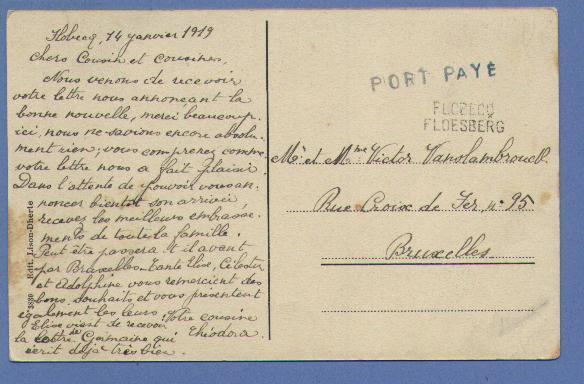 Flobecq, 14 janvier 1919
Chers Cousin et Cousines,
Nous venons de recevoir
votre lettre nous annonçant la
bonne nouvelle, merci beaucoup.
ici, nous ne savions encore absolu-
ment rien, vous comprenez comme
votre lettre nous a fait plaisir.
Dans l'attente de pouvoir vous an-
noncer bientôt son arrivée,
recevez les meilleurs embrasse-
ments de toute la famille.
Peut être passera-t-il avant
par Bruxelles. Tante Elise, Céleste
et Adolphine vous remercient des
bons souhaits et vous présentent
également les leurs. Votre cousine
Théodora.
Elise vient de recevoir
la lettre de Germaine qui
écrit déjà très bien.
3880 Edit. Lison-Dherte
PORT PAYÉ
FLOBECQ
FLOESBERG
Mr et Mme Victor Vanslambrouck
Rue Croix de Fer, no 95
Bruxelles